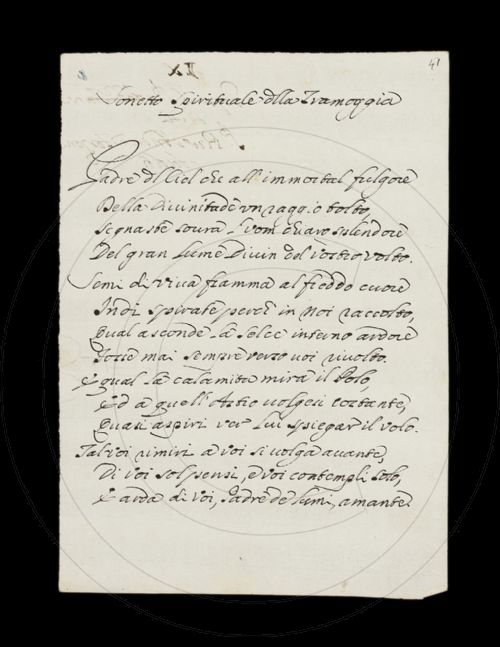 41
IX
Sonetto Spirituale della Tramoggia
Padre del Ciel che all'immortal fulgore
Della Divinitade un raggio tolto,
Segnaste soura l'uom chiaro splendore
Del gran Lume Divin del vostro volto.
Semi di viva fiamma al freddo cuore
Indi spirate, perch' in noi raccolto,
Qual asconde la selce interno ardore
Fosse mai sempre verso voi rivolto.
E qual la calamita mira il Polo,
Ed a quell'Artio volgesi costante,
Quasi aspiri ver lui spiegar il volo.
Tal voi rimiri a voi si volga avante,
Di voi sol pensi, e voi contempli solo,
E arda di voi, Padre de' lumi, amante.